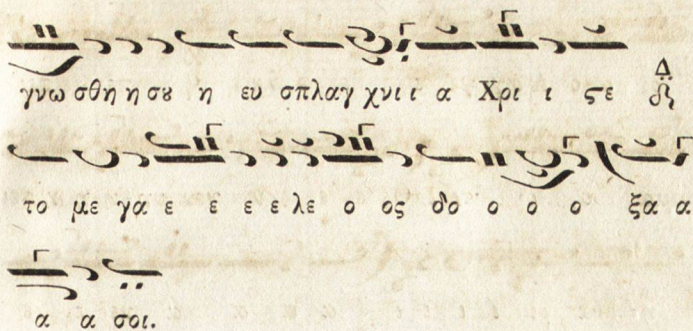 γνω σθη η σȣ η ευ σπλαγ χνι ι α Χρι ι ϛε Δ
το με γα ε ε ε ε λε ο ος δο ο ο ο ξα α
α α σοι.